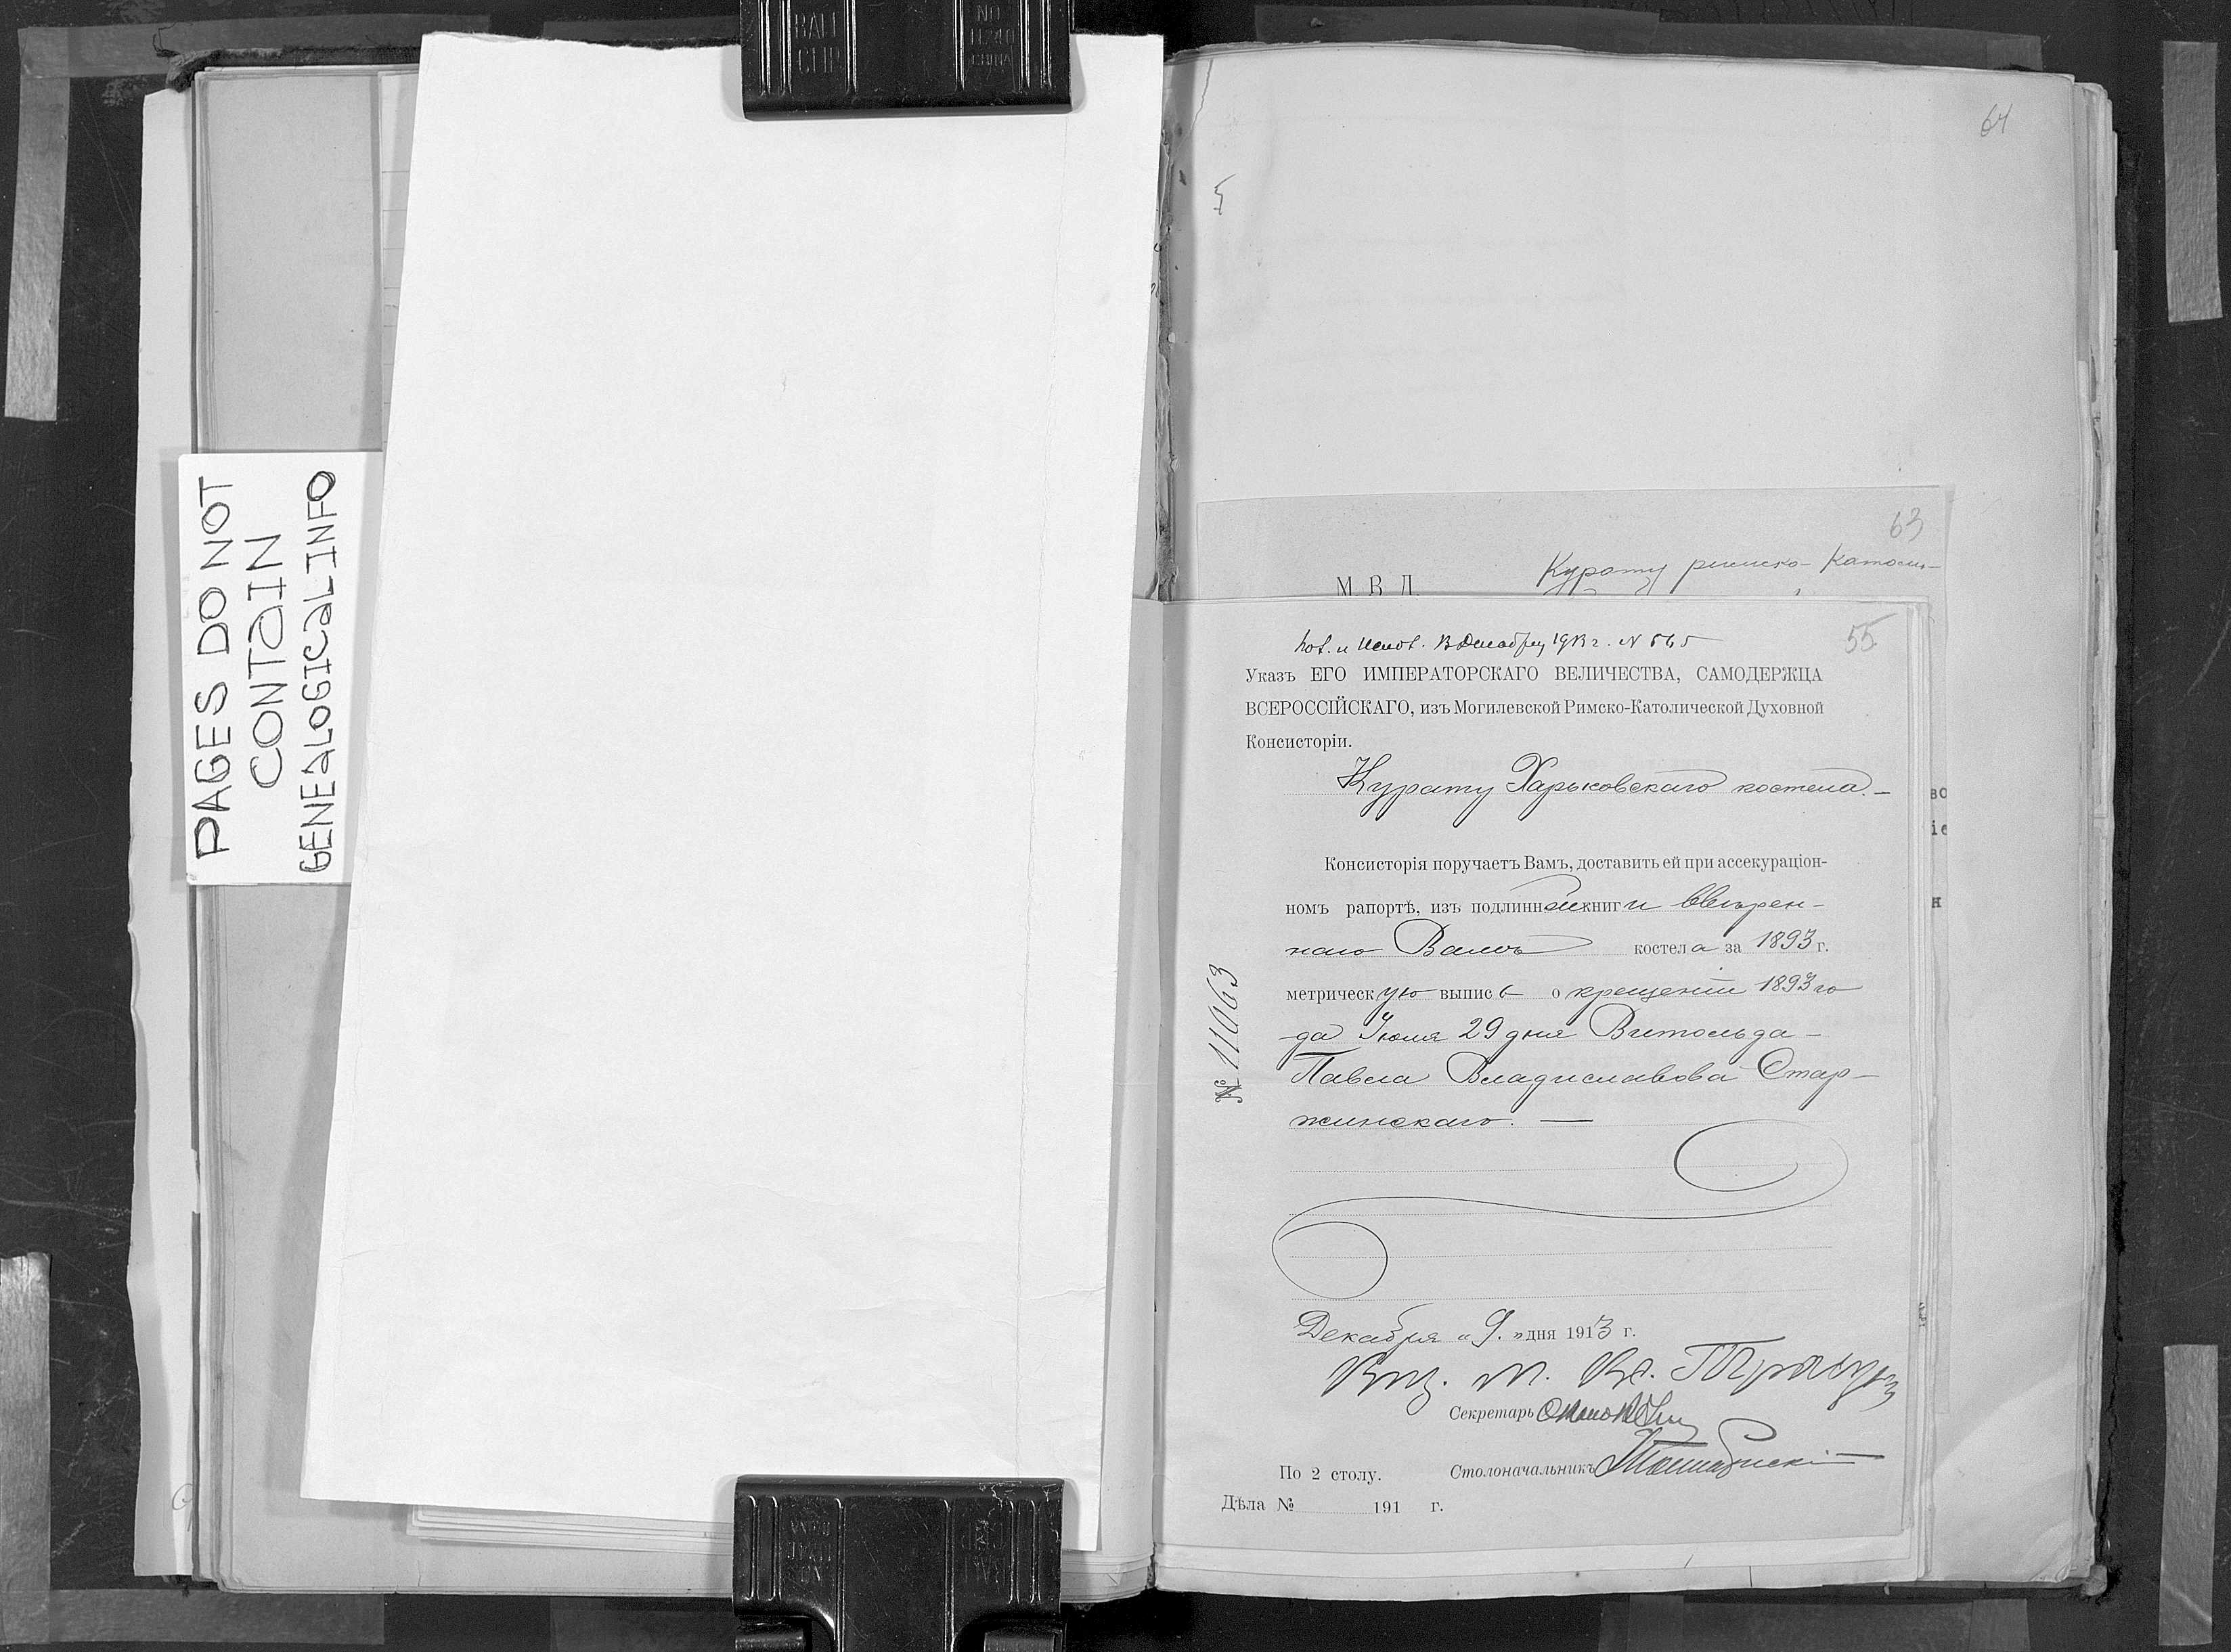 BALL
CLIP
NO
CHINA
PAGES DO NOT
CONTAIN
GENEALOGICAL INFO
64
63
М. В. Д.
Курату римско-католи-
55
1913 г. N 565
Указъ ЕГО ИМПЕРАТОРСКАГО ВЕЛИЧЕСТВА, САМОДЕРЖЦА
ВСЕРОССІЙСКАГО, изъ Могилевской Римско-Католической Духовной
Консисторіи.
Курату Харьковскаго костела.–
Консисторія поручаетъ Вамъ, доставить ей при ассекураціон-
номъ рапортѣ, изъ подлинной книги ввѣрен-
наго Вамъ костела за 1893 г.
метрическую выпись о крещеніи 1893 го
да Іюня 29 дня Витольда–
Павла Владиславова Стар-
жинскаго.—
№ 11063
Декабря „9." дня 1913 г.
Секретарь
По 2 столу. Столоначальникъ
Дѣла № 191 г.